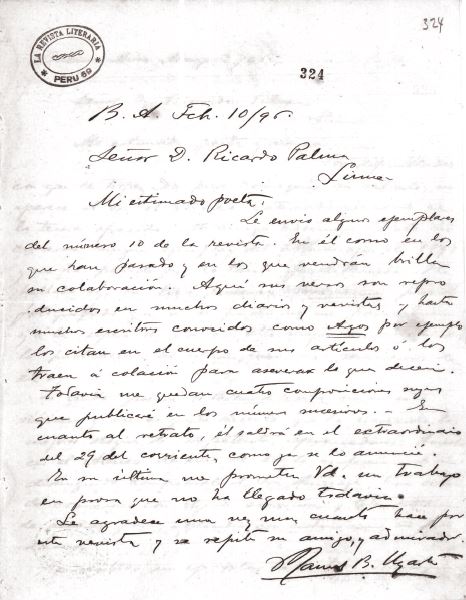 324
LA REVISTA LITERARIA
PERU 59
324
B. A. Feb. 10/96.
Señor D. Ricardo Palma
Lima
Mi estimado poeta:
Le envío algunos ejemplares
del número 10 de la revista. En él como en los
que han pasado y en los que vendrán brilla
su colaboración. Aquí sus versos son repro
ducidos en muchos diarios y revistas y hasta
muchos escritores conocidos como Argos por ejemplo
los citan en el cuerpo de sus artículos ó los
traen á colación para aseverar lo que dicen.
Todavía me quedan cuatro composiciones suyas
que publicaré en los números sucesivos. – En
cuanto al retrato, él saldrá en el extraordinario
del 29 del corriente, como ya se lo anuncié.
En su última me prometía Vd. un trabajo
en prosa que no ha llegado todavía.
Le agradece una vez mas cuanto hace por
esta revista y se repite su amigo, y admirador.
Manuel B. Ugarte